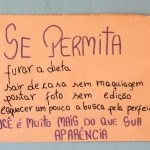 SE PERMITA
furar a dieta
sair de casa sem maquiagem
postar foto sem edição
esquecer um pouco a busca pela perfei
VOCÊ É MUITO MAIS DO QUE SUA
APARÊNCIA